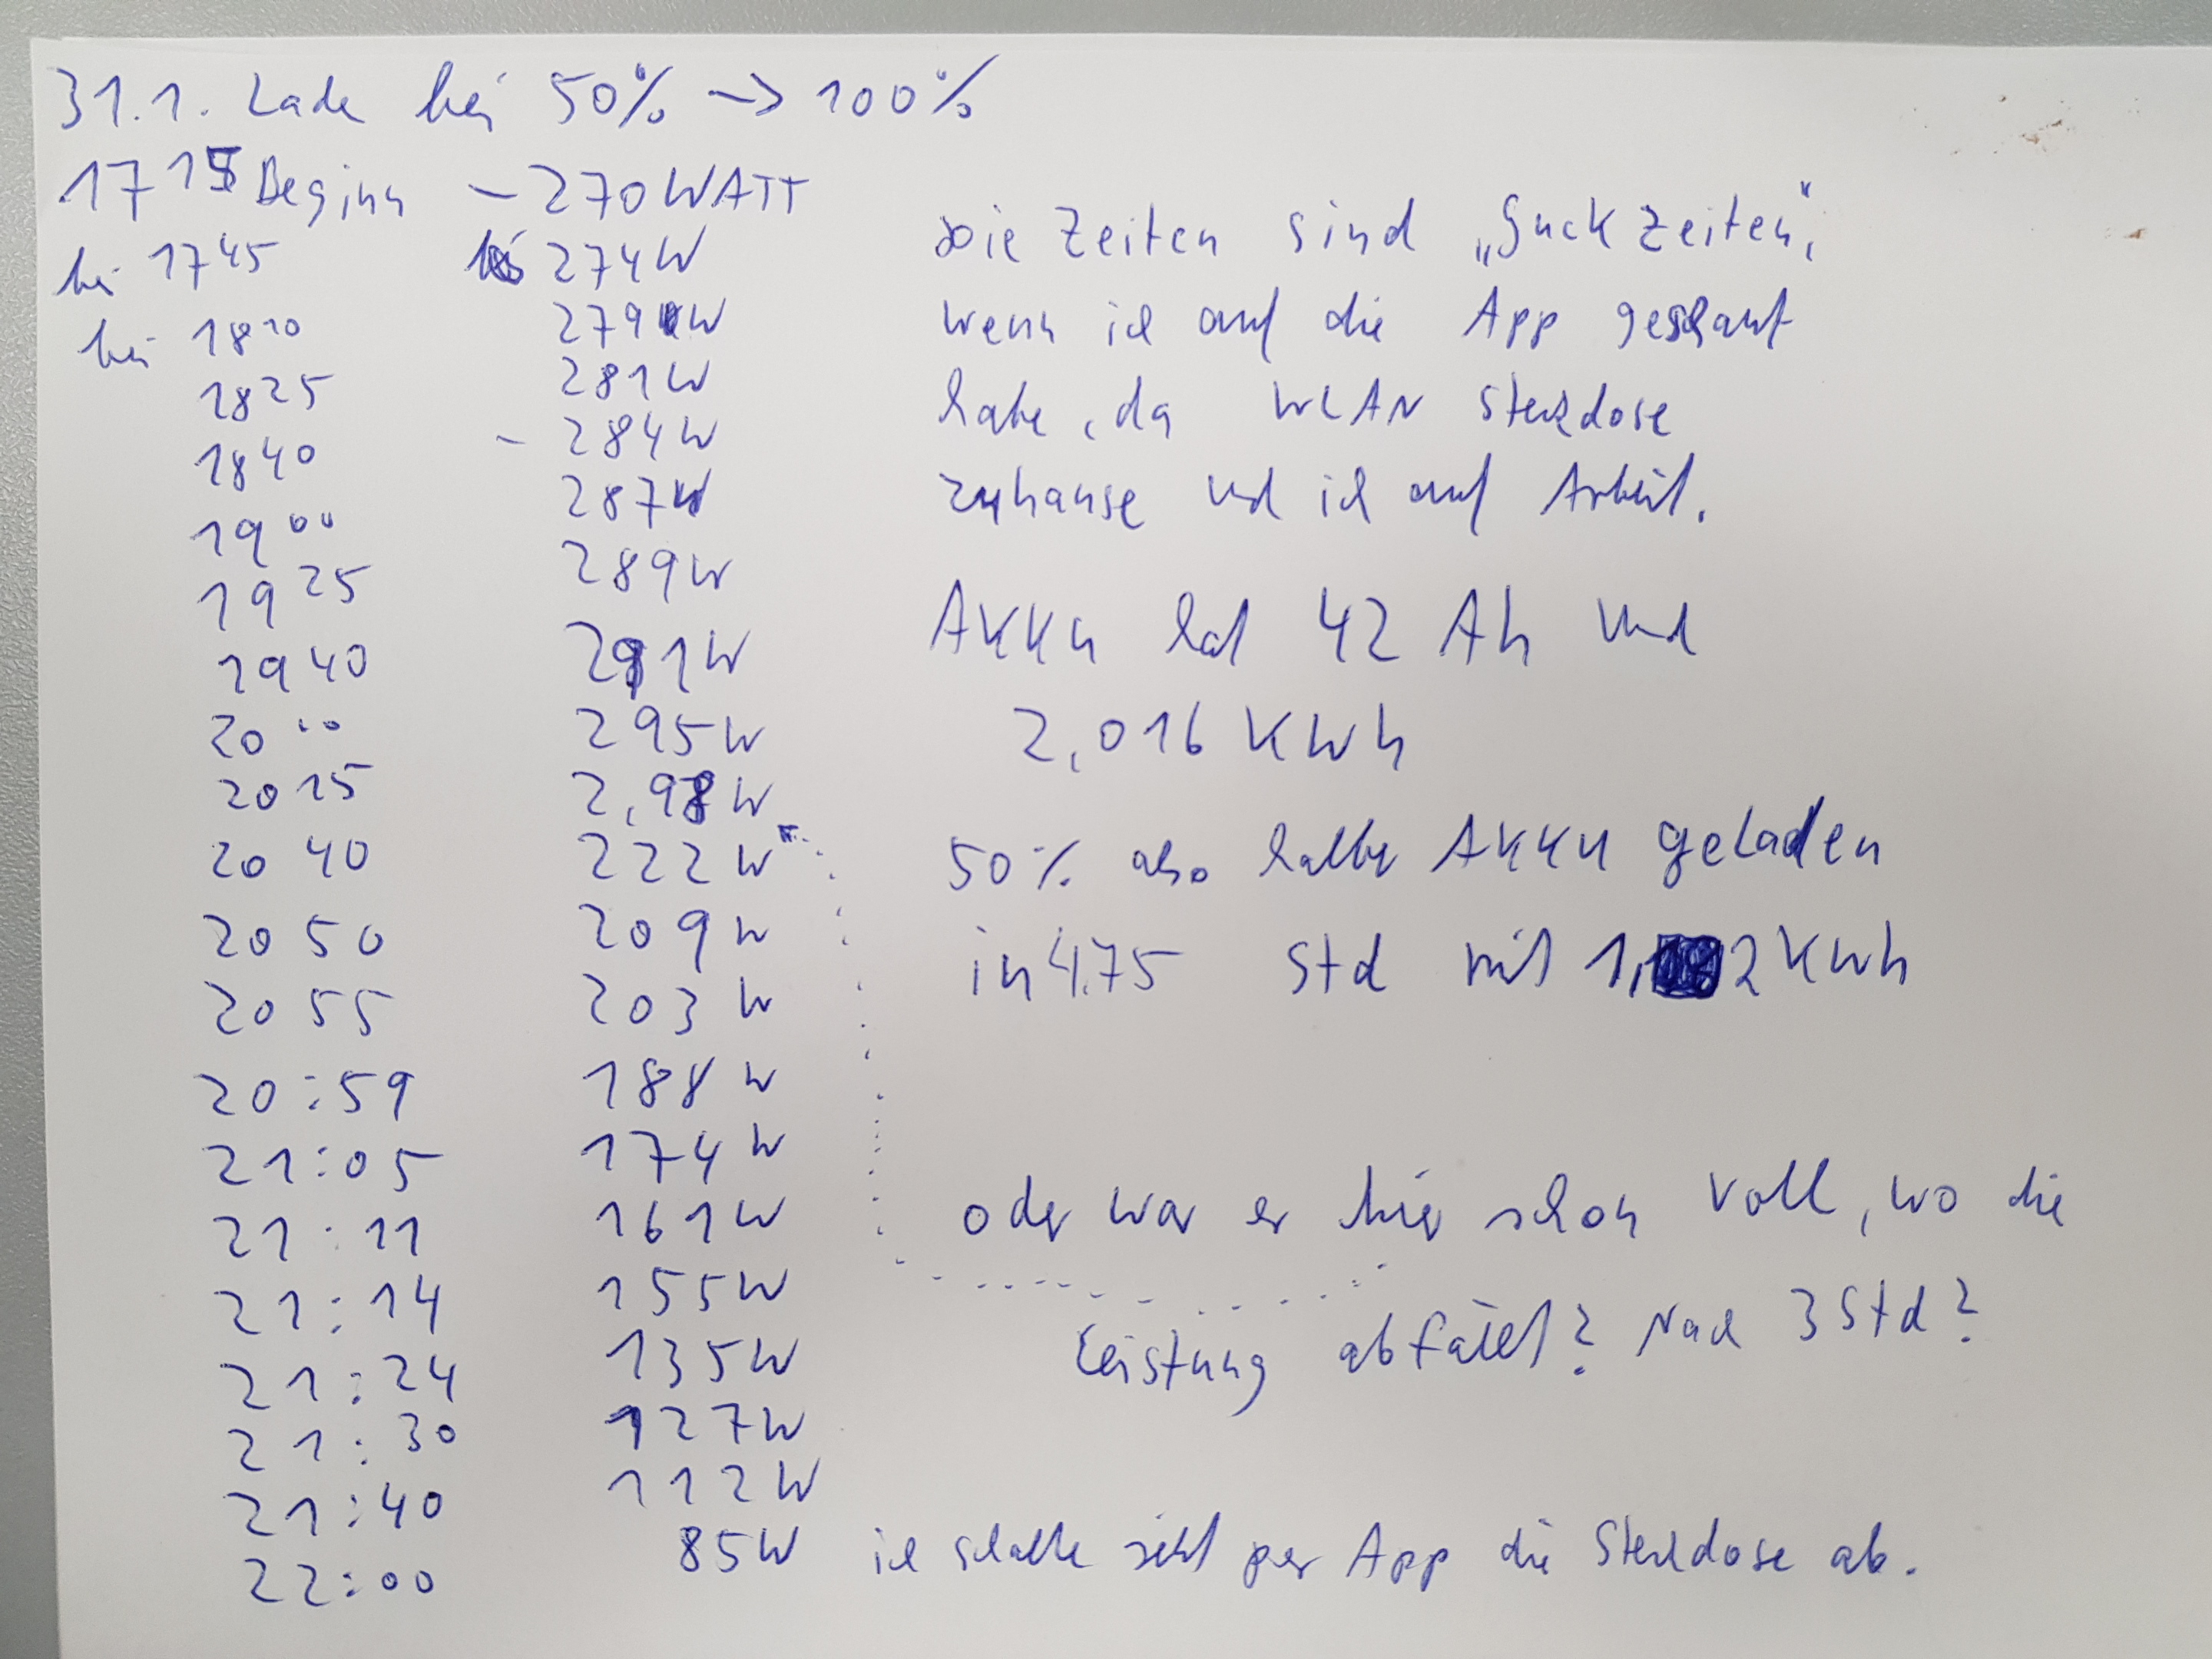 31.1. Lade bei 50% -> 100%
17 15 Beginn – 270 WATT
bei 17 45 274 W
bei 18 10 279 W
18 25 281 W
18 40 – 284 W
19 00 287 W
19 25 289 W
19 40 291 W
20 00 295 W
20 15 2,98 W
20 40 222 W
20 50 209 W
20 55 203 W
20:59 188 W
21:05 174 W
21:11 161 W
21:14 155 W
21:24 135 W
21:30 127 W
21:40 112 W
22:00 85 W ich schalte jetzt per App die Steckdose ab.
Die Zeiten sind „Guckzeiten",
wenn ich auf die App geschaut
habe, da WLAN Steckdose
zuhause und ich auf Arbeit.
Akku hat 42 Ah und
2,016 KWh
50% also halber Akku geladen
in 4,75 Std mit 1, 2 KWh
oder war er hier schon voll, wo die
Leistung abfällt? Nach 3 Std?